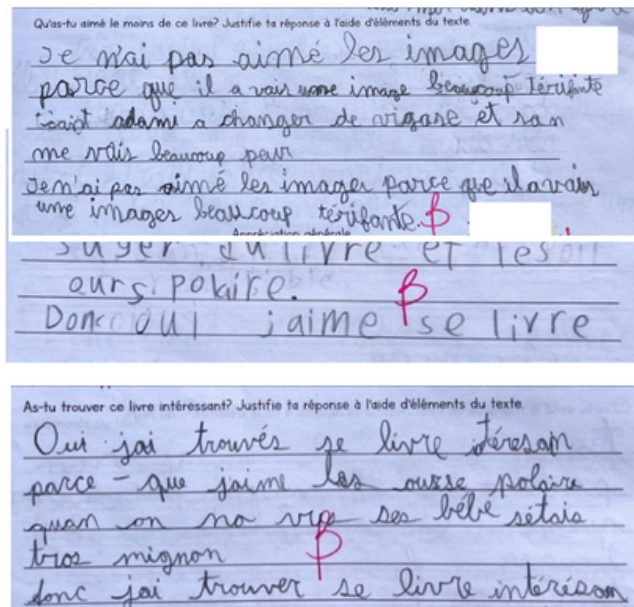 Qu'as-tu aimé le moins de ce livre? Justifie ta réponse à l'aide d'éléments du texte.
Je n'ai pas aimé les images
parce que il a vais une image beaucoup térifinte
adami a changer de vigase et san
me vais beaucoup peur
Je n'ai pas aimé les images parce que il avais
une images beaucoup térifante. β
Appréciation générale
suger du livre et les
ours polaire. β
Donc oui jaime se livre
As-tu trouver ce livre intéressant? Justifie ta réponse à l'aide d'éléments du texte.
Oui jai trouvés se livre itéresan
parce-que jaime les ousse polaire
quan on na vus ses bébé sétais
tros mignon β
donc jai trouver se livre intéresan